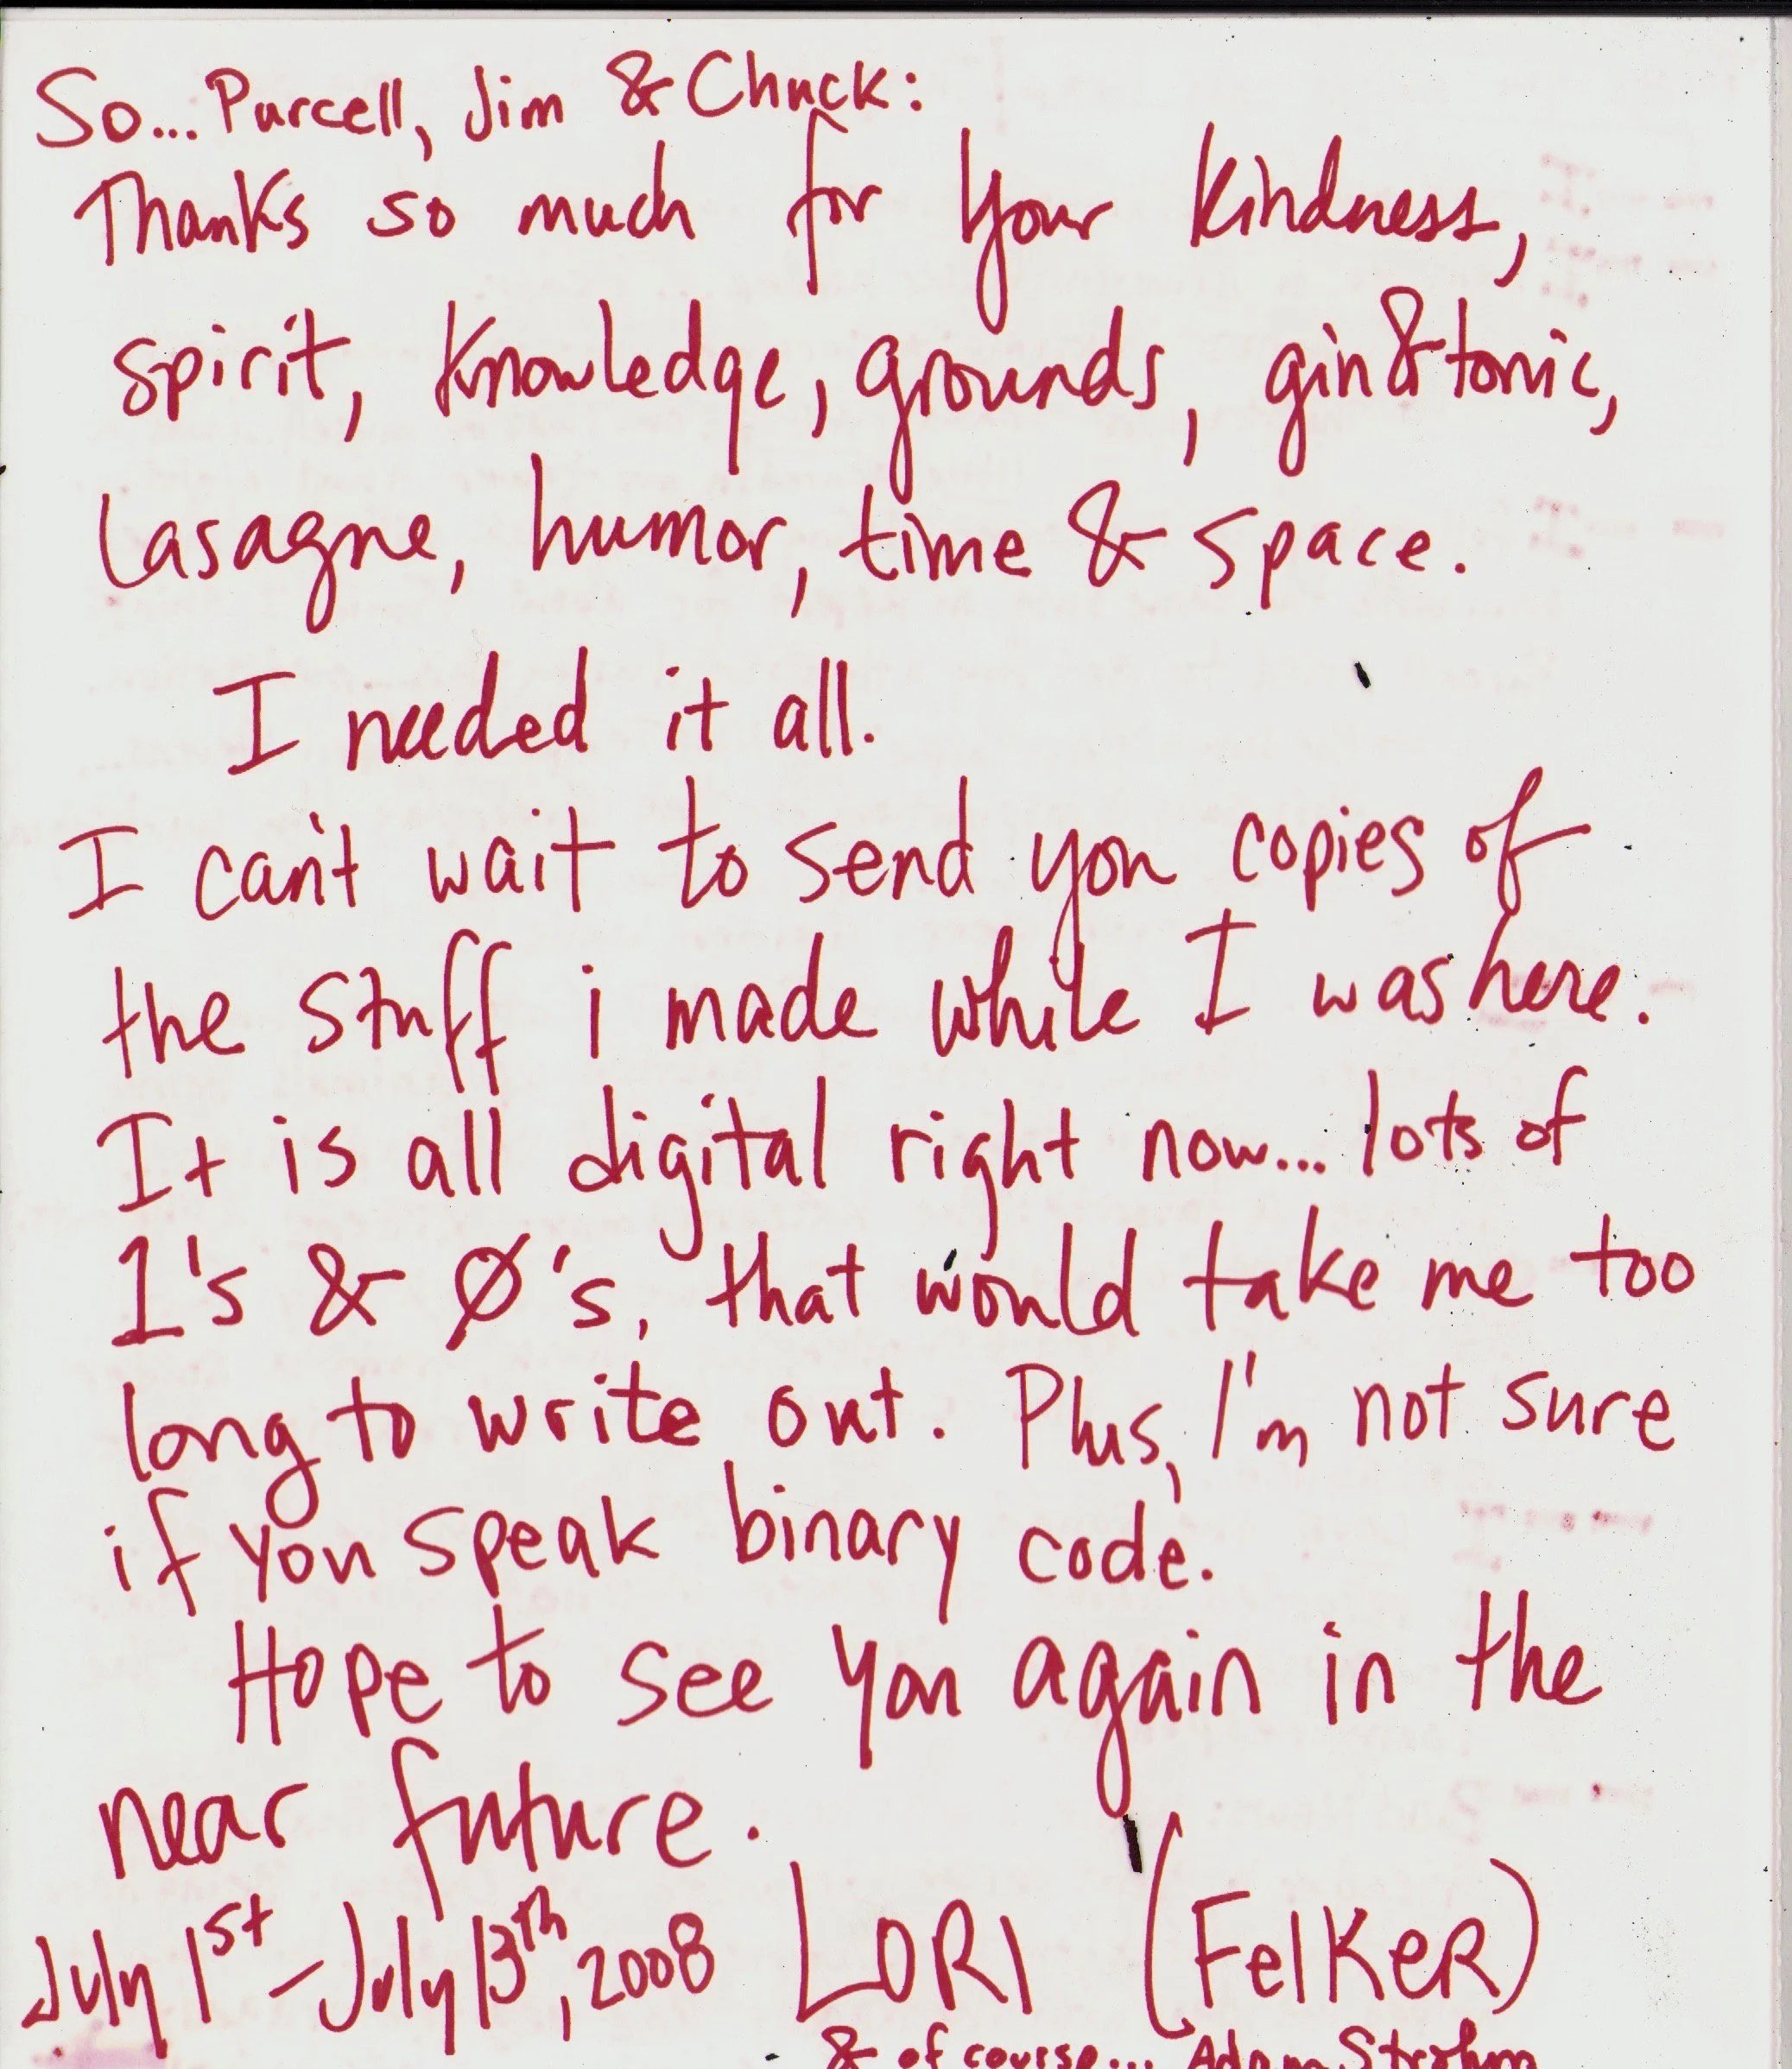 So... Purcell, Jim & Chuck:
Thanks so much for your kindness,
spirit, knowledge, grounds, gin & tonic,
lasagne, humor, time & space.
I needed it all.
I can't wait to send you copies of
the stuff i made while I was here.
It is all digital right now... lots of
1's & Ø's, that would take me too
long to write out. Plus, I'm not sure
if you speak binary code.
Hope to see you again in the
near future.
July 1st – July 13th, 2008 LORI (FelKeR)
& of course... Adam Strohm